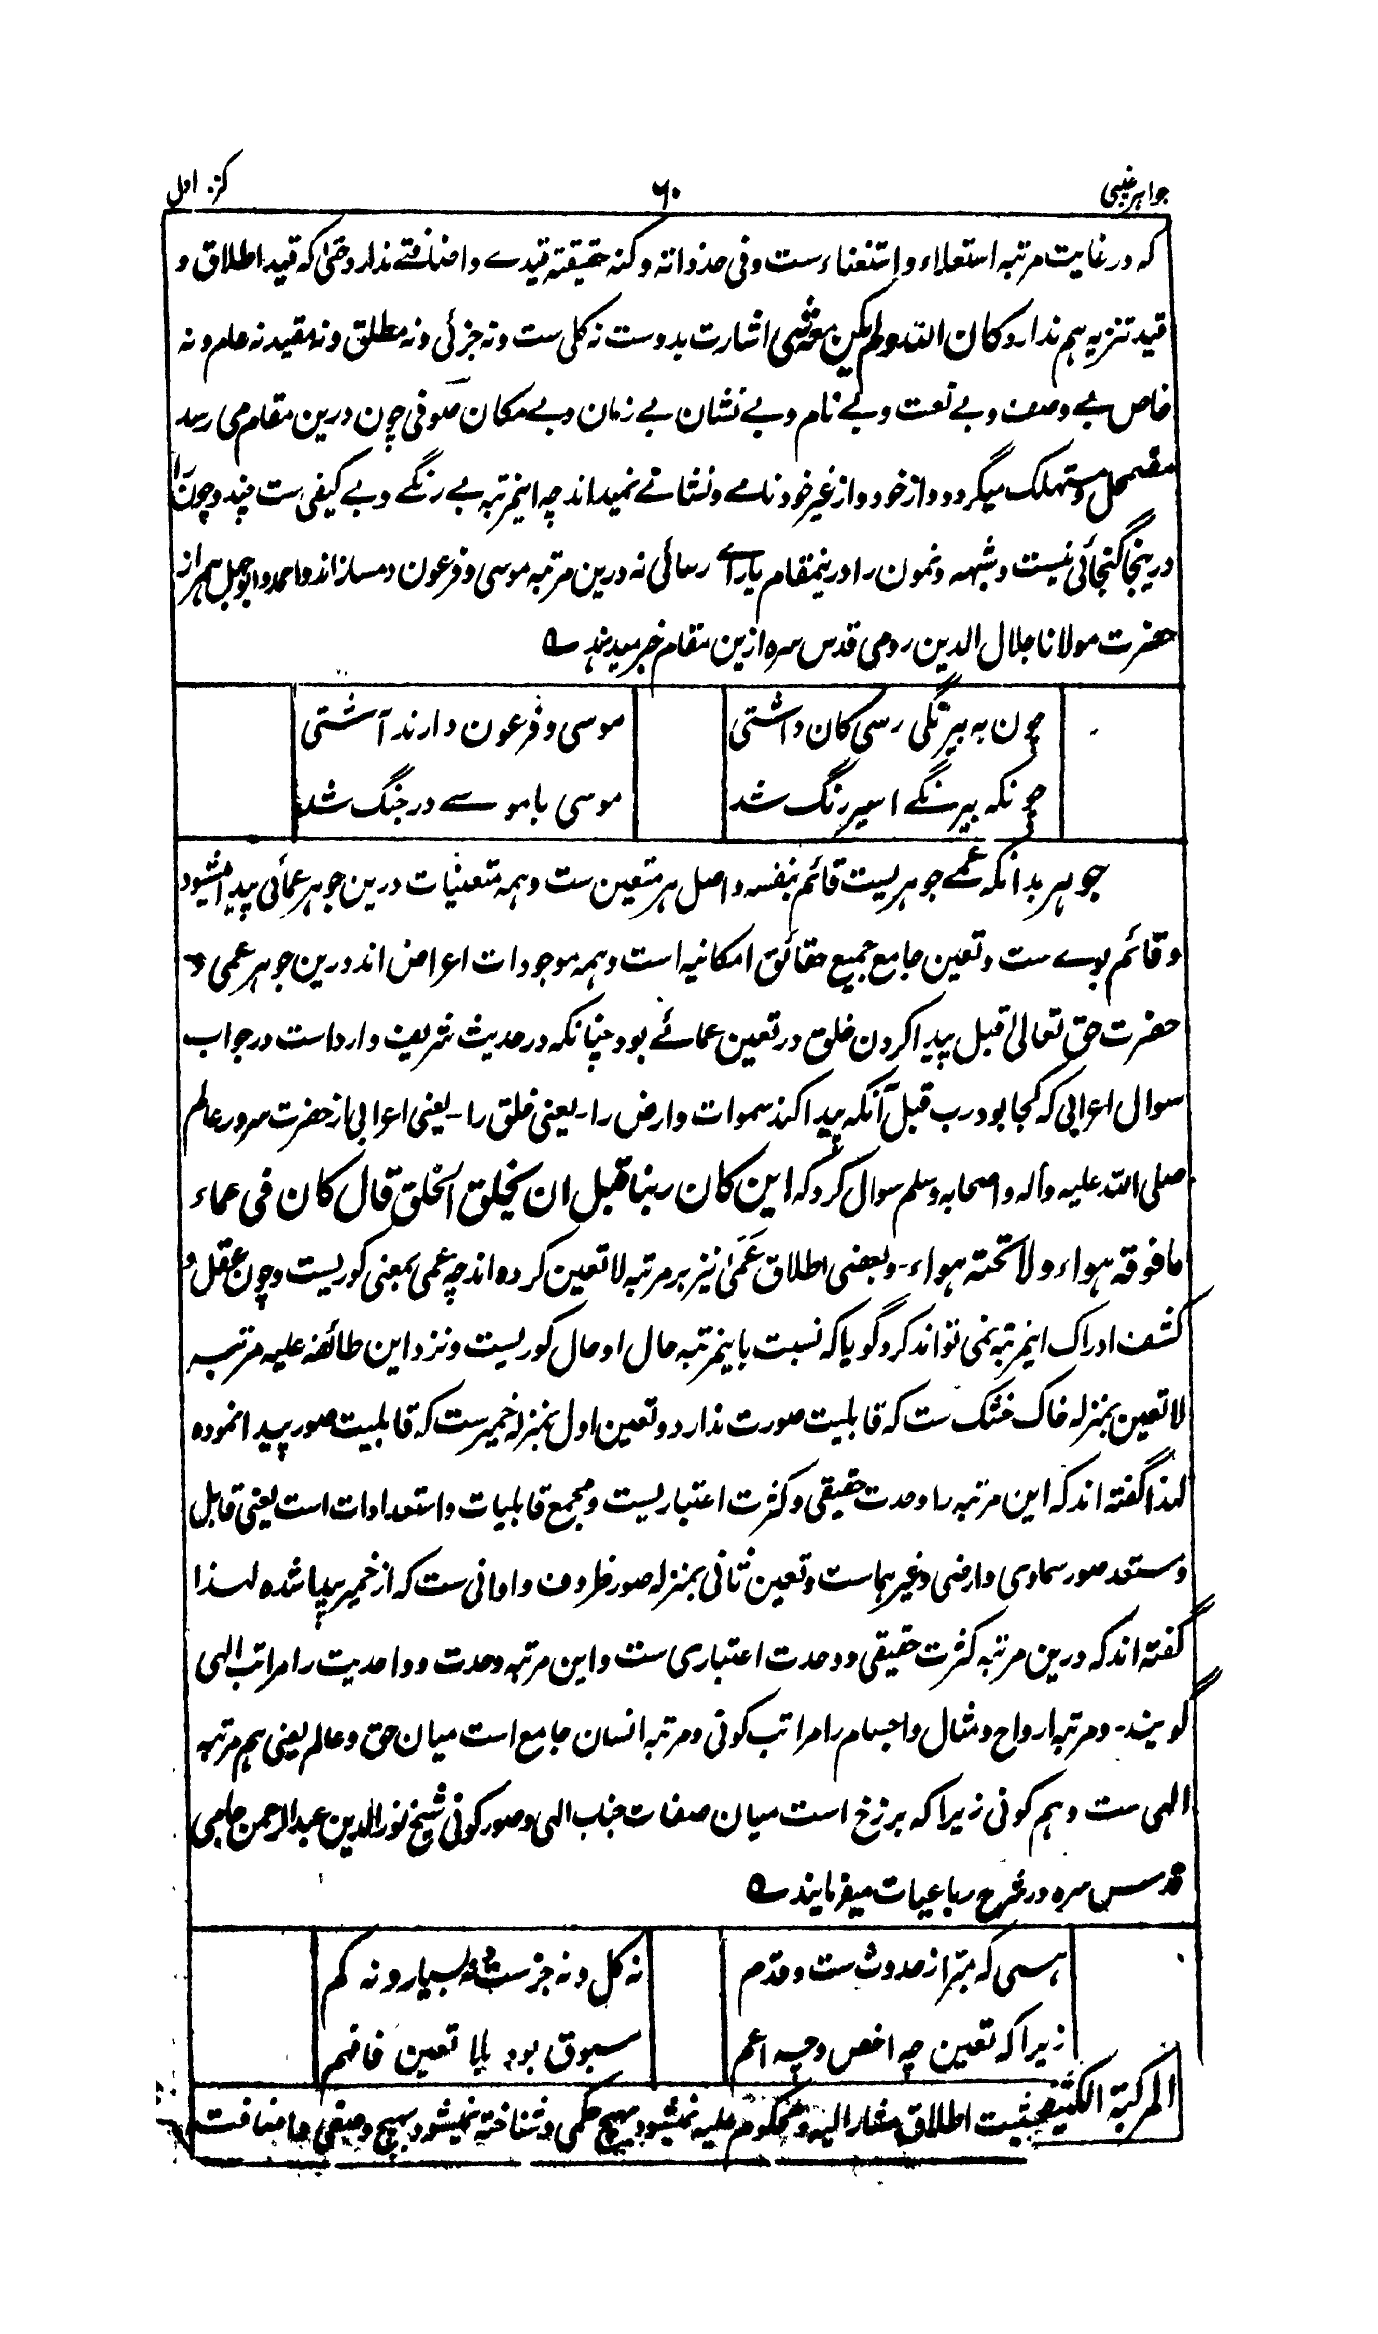 جواہر غیبی
۶۰
کنز اول
کہ در غایت مرتبہ استعلاء و استغناء ست و فی حد ذاتہ و کنہ حقیقتہ قیدے و اضافتے ندارد حتیٰ کہ قید اطلاق و
قید تنزیہ ہم ندارد کان اللہ ولم یکن معہ شی اشارت بدوست نہ کلی ست و نہ جزئی و نہ مطلق و نہ مقید نہ عام و نہ
خاص بے وصف و بے نعت و بے نام و بے نشان بے زمان و بے مکان صوفی چون درین مقام می رسد
مضمحل و مستہلک میگردد و از خود و از غیر خود نامے و نشانے نمیداند چہ اینمرتبہ بے رنگے و بے کیفی ست چند و چون را
درینجا گنجائی نیست و شبہہ و نمون را درینمقام یاراے رسائی نہ درین مرتبہ موسی و فرعون دمساز اند و احمد و ابوجہل ہمراز
حضرت مولانا جلال الدین رومی قدس سرہ ازین مقام خبر میدہند ے
چون بہ بیرنگی رسی کان داشتی
موسی و فرعون دارند آشتی
چونکہ بیرنگے اسیر رنگ شد
موسی با موسے در جنگ شد
جوہر بدانکہ عمے جوہریست قائم بنفسہ و اصل ہر متعین ست و ہمہ متعنیات درین جوہر عمائی پیدا میشود
و قائم بوے ست و تعین جامع جمیع حقائق امکانیہ است و ہمہ موجودات اعراض اند درین جوہر عمی و
حضرت حق تعالیٰ قبل پیدا کردن خلق در تعین عمائے بود چنانکہ در حدیث شریف وارد است در جواب
سوال اعرابی کہ کجا بود رب قبل آنکہ پیدا کند سموات و ارض را۔ یعنی خلق را۔ یعنی اعرابی از حضرت سرور عالم
صلی اللہ علیہ وآلہ واصحابہ وسلم سوال کرد کہ این کان ربنا قبل ان یخلق الخلق قال کان فی عماء
ما فوقہ ہواء ولا تحتہ ہواء۔ و بعضی اطلاق عَمَیٰ نیز بر مرتبہ لا تعین کردہ اند چہ عمی بمعنی کوریست و چون عقل و
کشف ادراک اینمرتبہ نمی تواند کرد گویا کہ نسبت باینمرتبہ حال او حال کوریست و نزد این طائفہ علیہ مرتبہ
لا تعین بمنزلہ خاک خشک ست کہ قابلیت صورت ندارد و تعین اول بمنزلہ خمیرست کہ قابلیت صور پیدا نمودہ
لہذا گفتہ اند کہ این مرتبہ را وحدت حقیقی و کثرت اعتباریست و مجمع قابلیات و استعدادات است یعنی قابل
و مستعد صور سماوی و ارضی و غیرہماست و تعین ثانی بمنزلہ صور ظروف و اوانی ست کہ از خمیر پیدا شدہ لہذا
گفتہ اند کہ درین مرتبہ کثرت حقیقی و وحدت اعتباری ست و این مرتبہ وحدت و واحدیت را مراتب الہی
گویند۔ و مرتبہ ارواح و مثال و اجسام را مراتب کونی و مرتبہ انسان جامع است میان حق و عالم یعنی ہم مرتبہ
الہی ست و ہم کونی زیرا کہ برزخ است میان صفات جناب الہی و صور کونی شیخ نور الدین عبدالرحمن جامی
قدس سرہ در شرح رباعیات میفرمایند ے
ہستی کہ مبرا ز حدوث ست و قدم
نہ کل و نہ جزست نہ بسیار و نہ کم
زیرا کہ تعین چہ اخص و چہ اعم
مسبوق بود بلا تعین فافہم
المرکبۃ بحیثیت اطلاق مشار الیہ و محکوم علیہ نمیشود بہیچ حکمی و شناختہ نمیشود بہیچ وصفی و اضافت